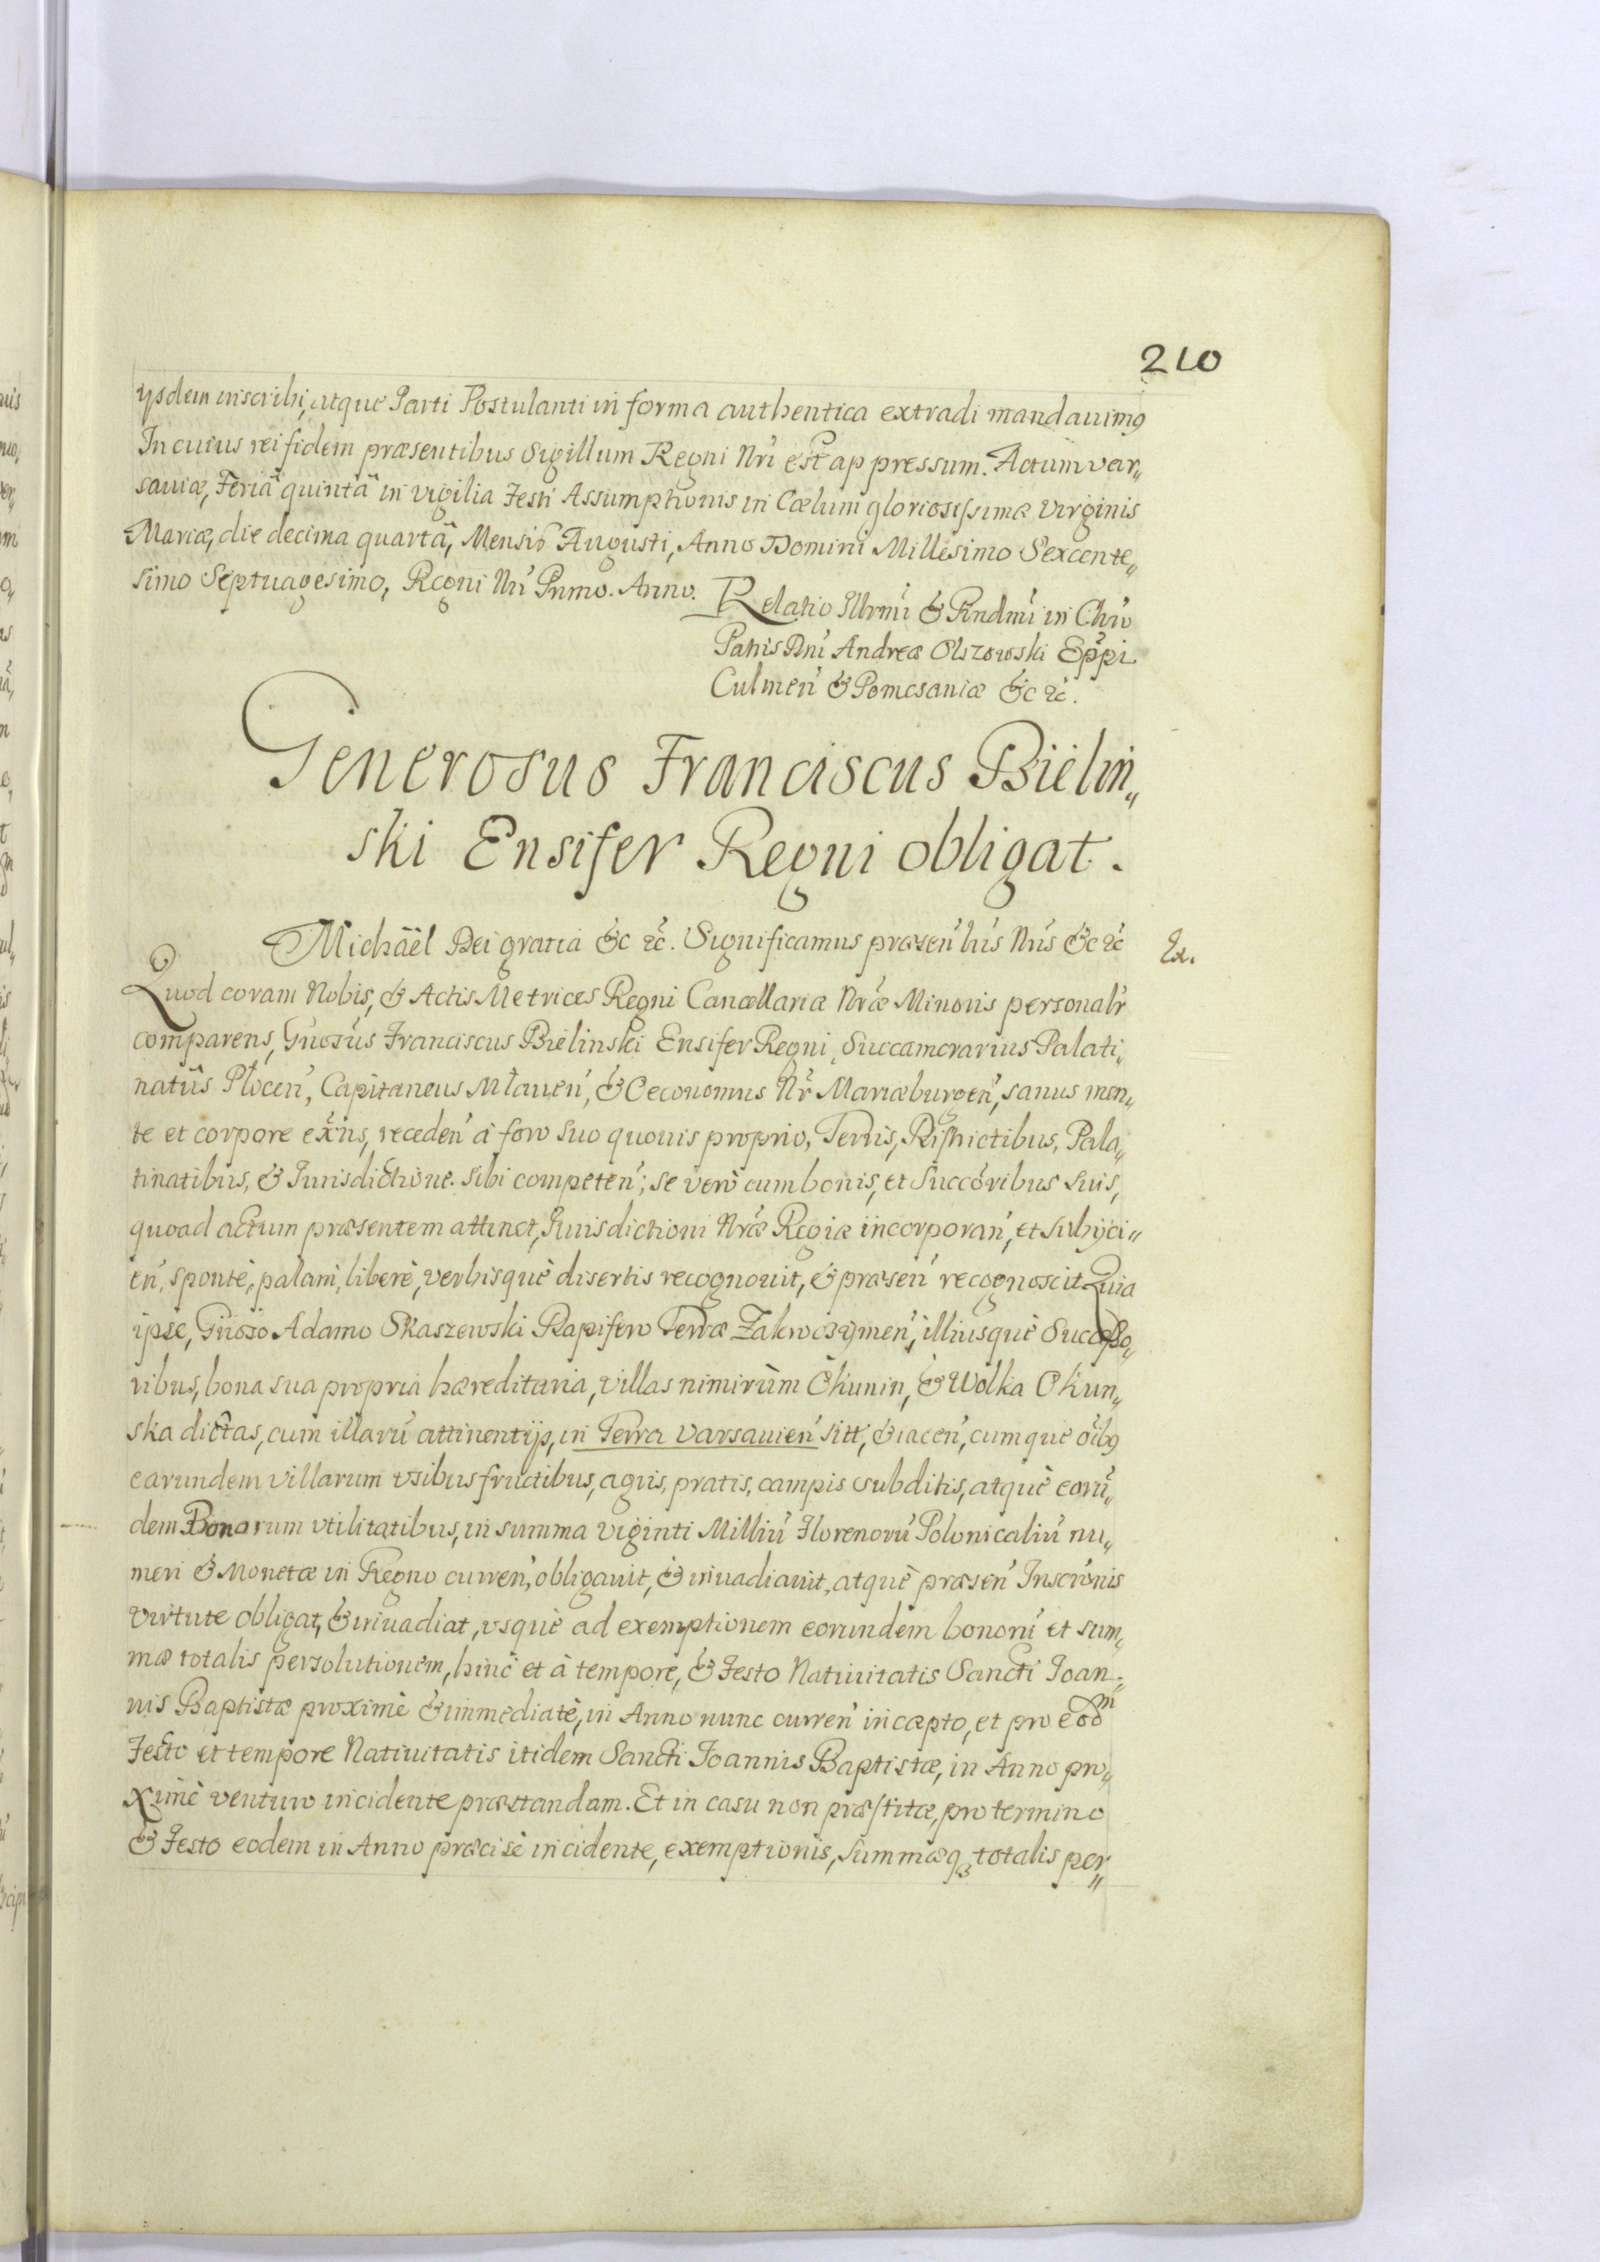 210
ysdem inscribi, atque Parti Postulanti in forma authentica extradi mandauimꝯ
In cuius rei fidem præsentibus Sigillum Regni Nri est appressum. Actum var„
sauiæ, Feriâ quintâ in vigilia Festi Assumptionis in Cælum gloriosissimæ Virginis
Mariæ, die decima quartâ, Mensis Augusti, Anno Domini Millesimo Sexcente„
simo Septuagesimo, Regni Nri Primo. Anno.
Relatio Illrmi & Rndmi in Chro
Patris Dni Andreæ Olszowski Eppi
Culmen̄ & Pomesaniæ &c &c.
Generosus Franciscus Bielin„
ski Ensifer Regni obligat.
Michäel Dei gratia &c &c. Significamus præsen̄ lrīs Nrīs &c &c
Ex.
Quod coram Nobis, & Actis Metrices Regni Cancellariæ Nræ Minoris personalr̄
comparens, Gn̄osus Franciscus Bielinski Ensifer Regni, Succamerarius Palati„
natûs Płocen̄, Capitaneus Młauen̄, & Oeconomus Nr̄ Mariæburgen̄, sanus men„
te et corpore exn̄s, receden̄ à foro suo quouis proprio, Terris, Districtibus, Pala„
tinatibus, & Jurisdictione sibi competen̄; se verò cum bonis, et Succōribus suis,
quoad actum præsentem attinet, Jurisdictioni Nræ Regiæ incorporan̄, et subijci„
en̄, spontè, palam, liberè, verbisquè disertis recognouit, & præsen̄ recognoscit Quia
ipse, Gn̄oso Adamo Skaszewski Dapifero Terræ Zakroczymen̄, illiusquè Successo„
ribus, bona sua propria hæreditaria, villas nimirùm Okunin, & Wolka Okun„
ska dictas, cum illarū attinentijs, in Terra Varsauien̄ sitt, & iacen̄, cumquè oībꝯ
earundem villarum vsibusfructibus, agris, pratis, campis subditis, atquè eorū„
dem Bonorum vtilitatibus, in summa viginti Milliū Florenorū Polonicaliū nu„
meri & Monetæ in Regno curren̄, obligauit, & inuadiauit, atquè præsen̄ Inscrōnis
virtute obligat, & inuadiat, vsquè ad exemptionem eorundem bonorū et sum„
mæ totalis persolutionem, hinc et à tempore, & Festo Natiuitatis Sancti Joan„
nis Baptistæ proximè & immediatè, in Anno nunc curren̄ incæpto, et pro eodm
Festo et tempore Natiuitatis itidem Sancti Joannis Baptistæ, in Anno pro„
ximè venturo incidente præstandam. Et in casu non præstitæ, pro termino
& Festo eodem in Anno præcisè incidente, exemptionis, summæqꝫ totalis per„